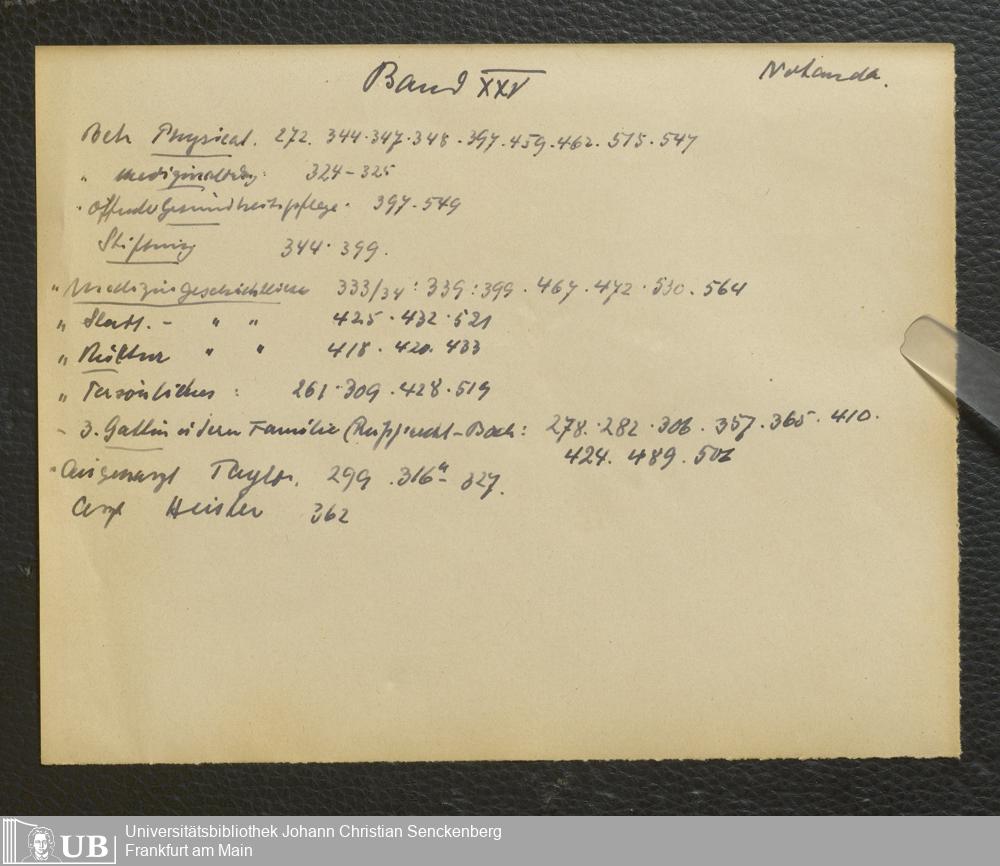 Band XXV
Notanda.
Betr. Physicat. 272. 344·347·348·397·459·462·515·547
" 324-325
" öffentl. Gesundheitspflege· 397·549
Stiftung 344·399.
" Medizingeschichtliches 333/34:339:399·467·472·530·564
" Stadt. - " " 425·432·521
" Kultur " " 418·420·433
" Persönliches : 261·309·428·519
- 3. Gattin u deren Familie (Rupprecht-Bach: 278.·282·306·357·365·410·
424. 489. 502
" Augenarzt Taylor. 299 .316"- 327.
Arzt Heister 362
UB
Universitätsbibliothek Johann Christian Senckenberg
Frankfurt am Main